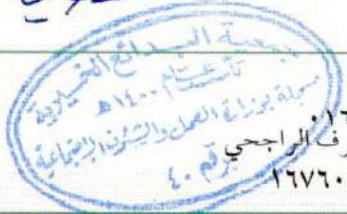 جمعية البدائع الخيرية
تأسست عام ١٤٠٠هـ
مسجلة بوزارة العمل والشئون الاجتماعية
برقم ٤٠
٠١٦
الراجحي
١٦٧٦٠